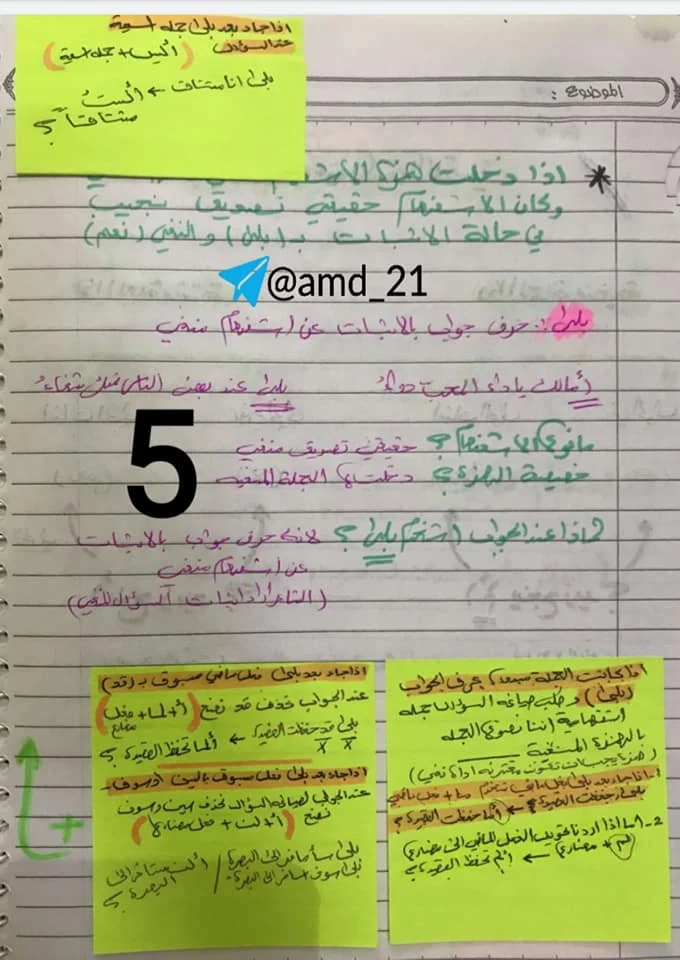 اذا جاء بعد بلى جملة اسمية
عند السؤال (أليس + جملة اسمية)
بلى انا مشتاق ← ألستُ
مشتاقاً؟
الموضوع :
* اذا دخلت همزة الاستفهام
وكان الاستفهام حقيقي تصديق نجيب
في حالة الاثبات بـ (بلى) والنفي (نعم)
@amd_21
بلى: حرف جواب بالاثبات عن استفهام منفي
أمالك يا داء المحب دواءُ بلى عند بعض الناس شفاءُ
5
ما نوع الاستفهام؟ حقيقي تصديق منفي
خصيصة الهمزة؟ دخلت الجملة المنفيه
لماذا عند الجواب استخدم بلى؟ لانه حرف جواب بالاثبات
عن استفهام منفي
(الشاعر اراد اثبات السؤال المنفي)
اذا جاء بعد بلى فعل ماضي مسبوق بـ (قد)
عند الجواب نحذف قد نضع (أ + لما + فعل مضارع)
بلى قد حفظت القصيدة ← ألما تحفظ القصيدة؟
اذا جاء بعد بلى فعل مسبوق بالسين او سوف
عند الجواب لصياغة السؤال نحذف سين وسوف
نضع (أ + لن + فعل مضارع)
بلى سأسافر الى البصرة / ألن تسافر الى
بلى سوف اسافر الى البصرة البصرة؟
اذا كانت الجملة مبدوءة بحرف الجواب
(بلى) وطلب صياغة السؤال جملة
استفهامية اننا نصوغ الجملة
بالهمزة المنفية
بلى حفظت القصيدة ← أما حفظت القصيدة؟
2- اما اذا اردنا تحويل الفعل الماضي الى مضارع
لم + مضارع ← ألم تحفظ القصيدة؟